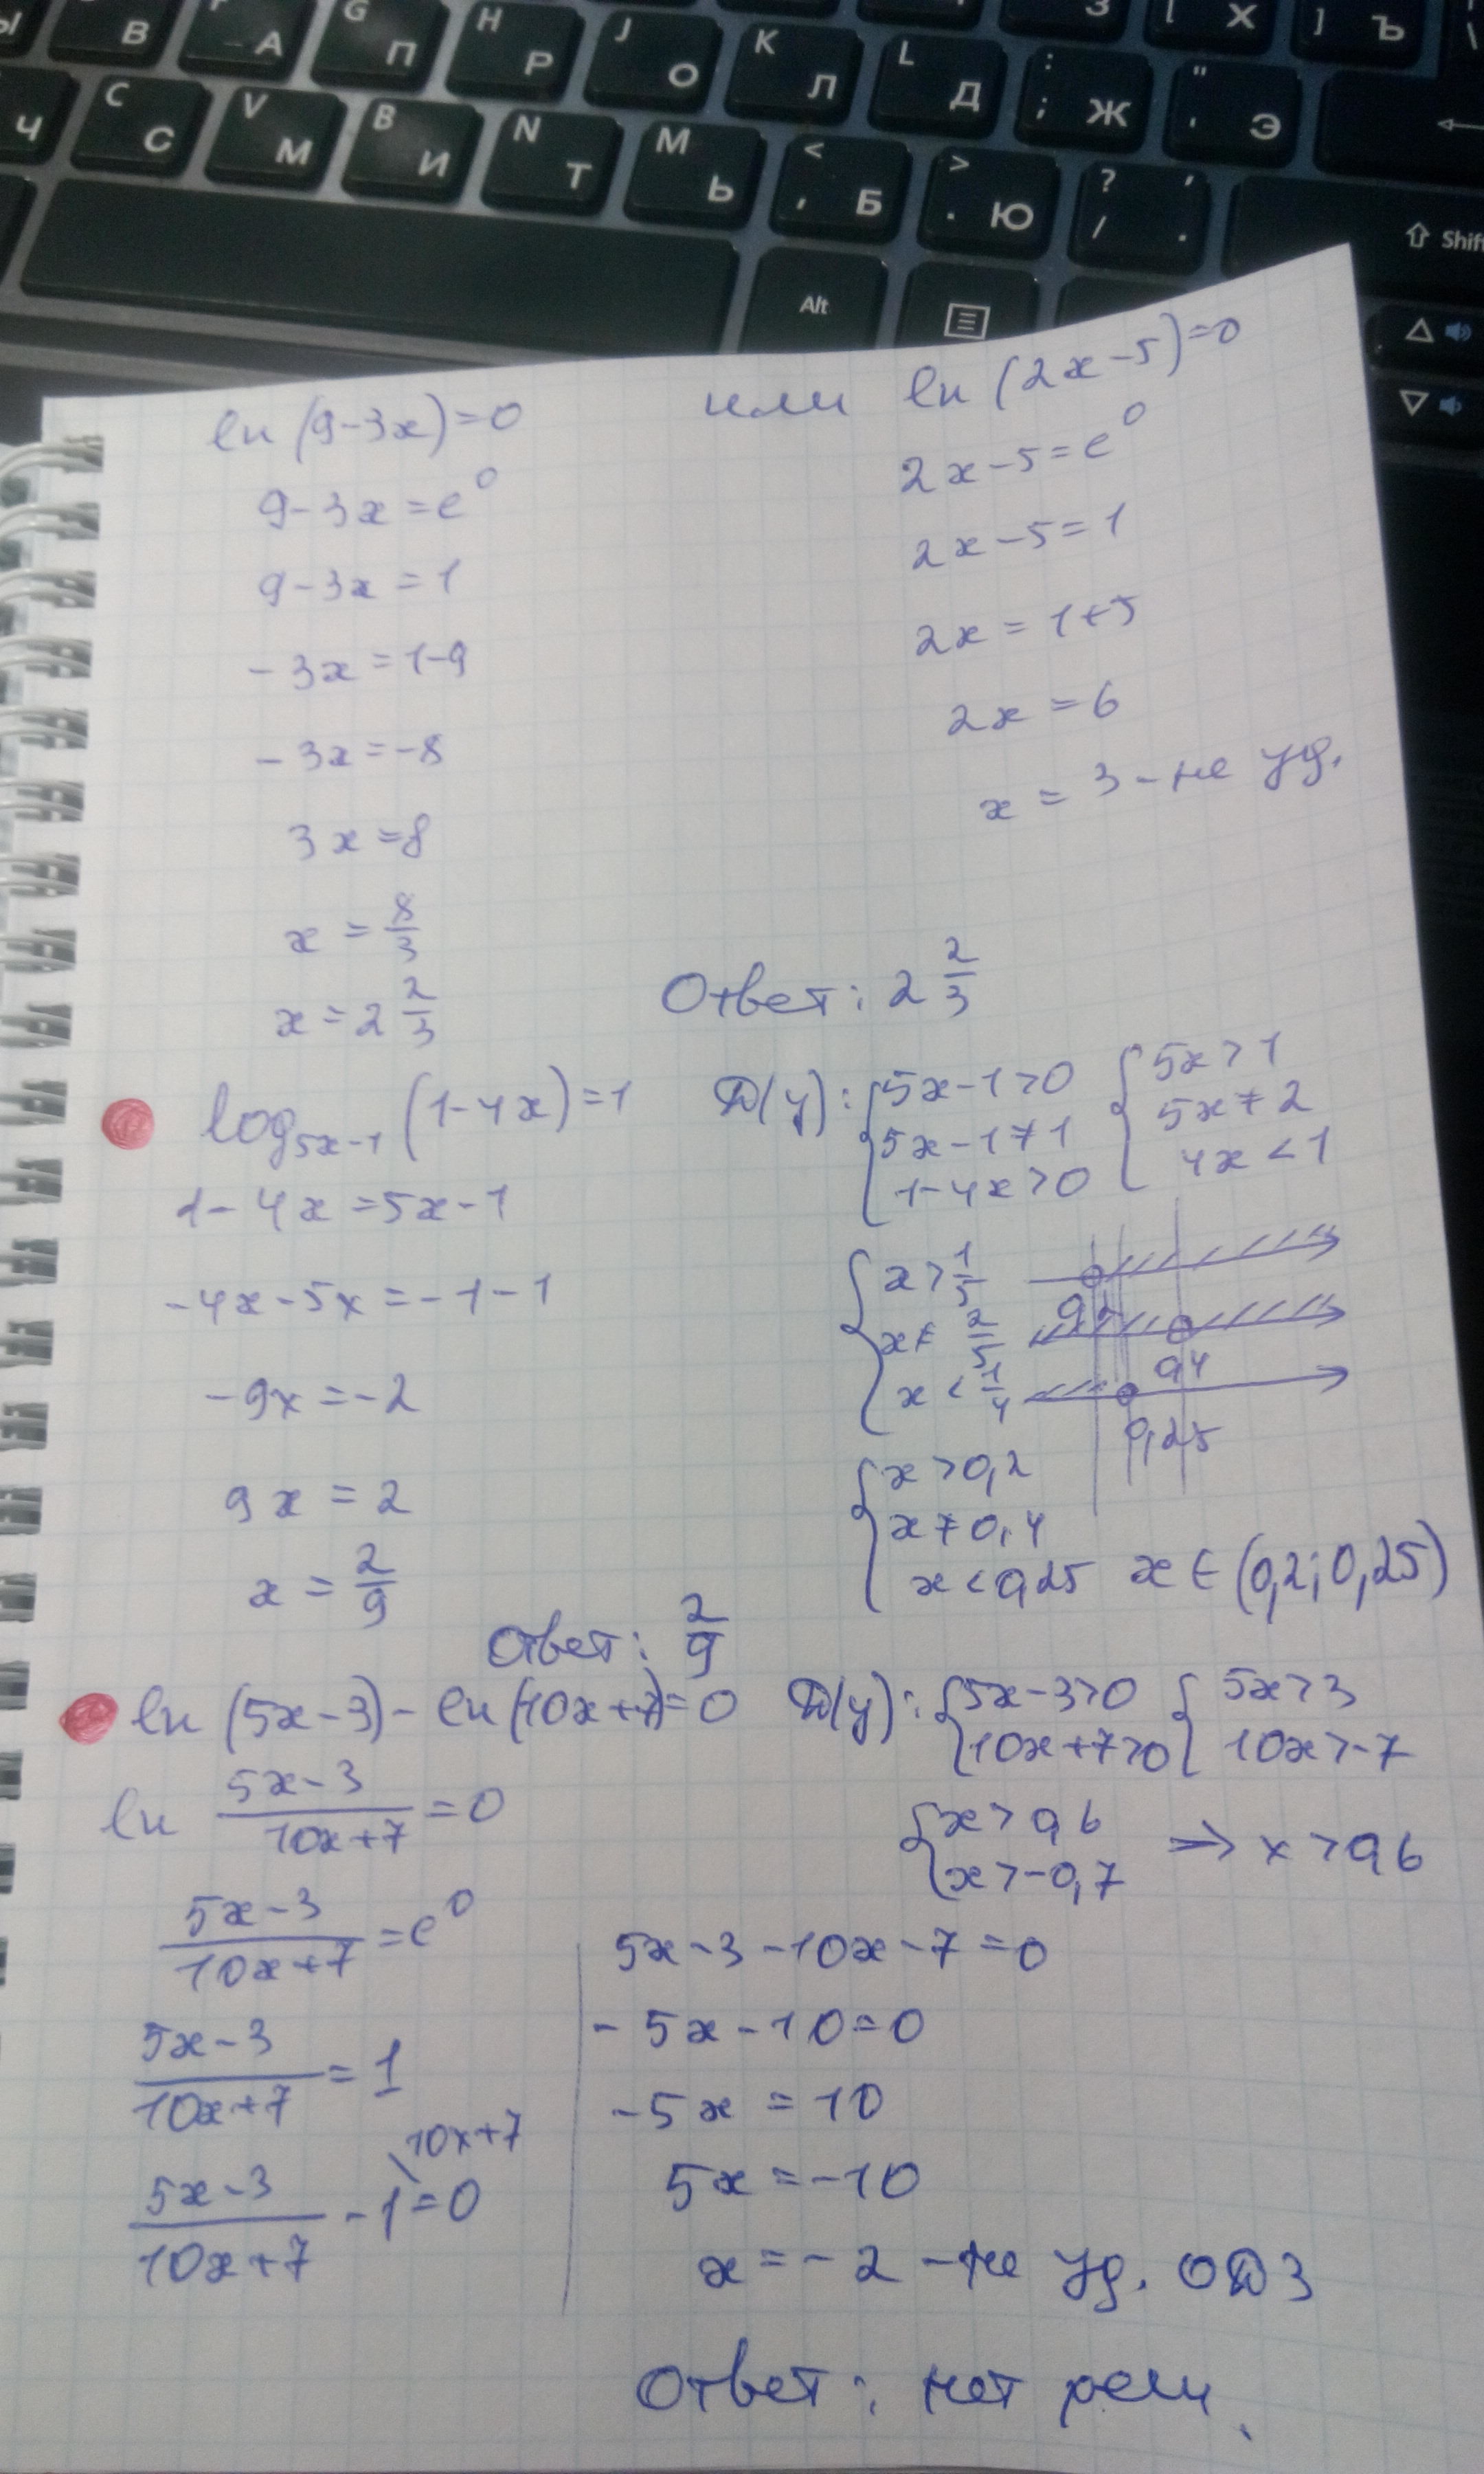 Ы В
F А
G П
H Р
J О
K Л
L Д
: ; Ж
" ' Э
З
[ Х
] Ъ
\
Ч
C С
V М
B И
N Т
M Ь
< , Б
> . Ю
? / ' .
Shift
Alt
ln (9-3x)=0 или ln (2x-5)=0
9-3x=e⁰ 2x-5=e⁰
9-3x=1 2x-5=1
-3x=1-9 2x=1+5
-3x=-8 2x=6
3x=8 x=3-не уд.
x=8/3
x=2 2/3 Ответ: 2 2/3
log₅ₓ₋₁ (1-4x)=1 D(y): {5x-1>0 {5x>1
5x-1≠1 5x≠2
1-4x>0 4x<1
1-4x=5x-1
-4x-5x=-1-1
-9x=-2
9x=2
x=2/9
{x>1/5 0,2
x≠2/5 0,4
x<1/4 0,25
{x>0,2
x≠0,4
x<0,25 x∈(0,2;0,25)
Ответ: 2/9
ln (5x-3)-ln(10x+7)=0 D(y): {5x-3>0 {5x>3
10x+7>0 10x>-7
ln (5x-3)/(10x+7)=0 {x>0,6
x>-0,7 ⇒ x>0,6
(5x-3)/(10x+7)=e⁰
(5x-3)/(10x+7)=1
(5x-3)/(10x+7)-1\10x+7=0
5x-3-10x-7=0
-5x-10=0
-5x=10
5x=-10
x=-2-не уд. ОДЗ
Ответ: нет реш.